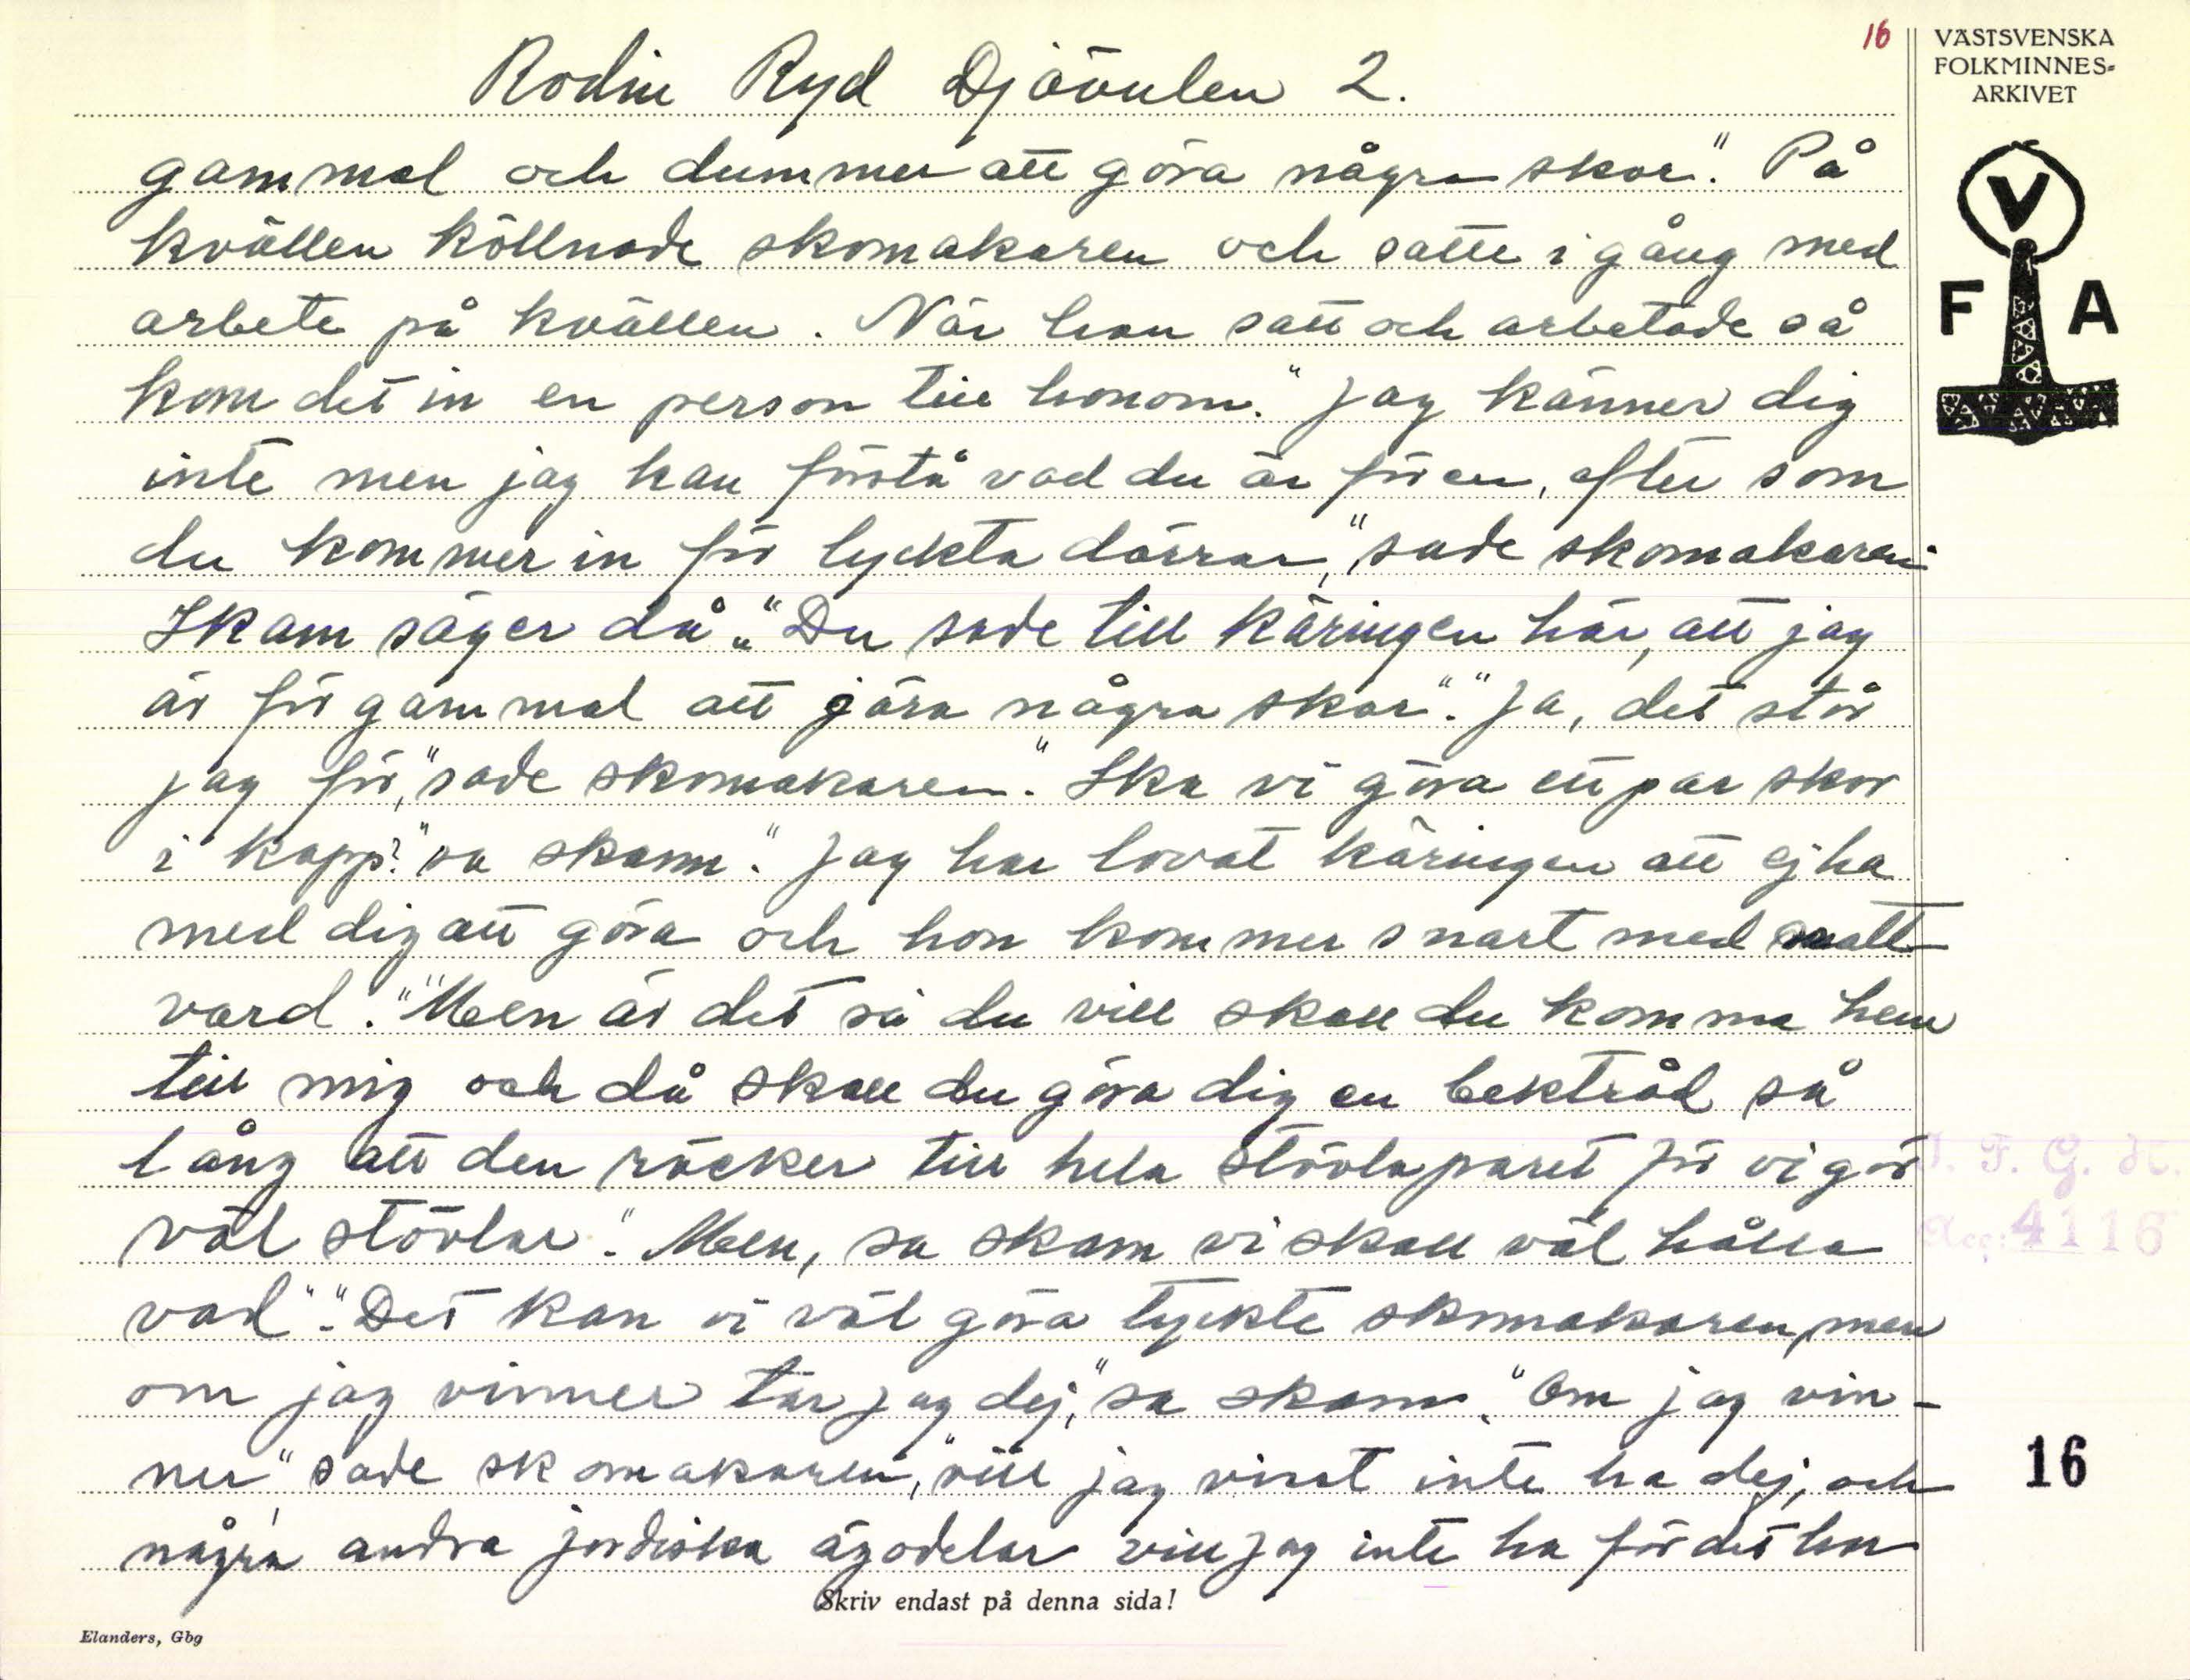 16
VÄSTSVENSKA
FOLKMINNES-
ARKIVET
V
F A
Rodin Ryd Djävulen 2.
gammal och dummer att göra några skor." På
kvällen köllnade skomakaren och satte i gång med
arbete på kvällen. När han satt och arbetade så
kom det in en person till honom. "Jag känner dig
inte men jag kan förstå vad du är för en, efter som
du kommer in för lyckta dörrar," sade skomakaren.
Skam säger då "Du sade till käringen här, att jag
är för gammal att göra några skor". "Ja, det står
jag för," sade skomakaren. "Ska vi göra ett par skor
i kapp?" sa skam. "Jag har lovat käringen att ej ha
med dig att göra och hon kommer snart med natt-
vard." "Men är det så du vill skall du komma hem
till mig och då skall du göra dig en bektråd så
lång att den räcker till hela stövlaparet för vi gör
väl stövlar". Men, sa skam vi skall väl hålla
vad". "Det kan vi väl göra tyckte skomakaren, men
om jag vinner tar jag dej," sa skam. "Om jag vin-
ner" sade skomakaren, "vill jag visst inte ha dej, och
några andra jordiska ägodelar vill jag inte ha för det har
Skriv endast på denna sida!
Elanders, Gbg
I. F. G. H.
Acc: 4116
16